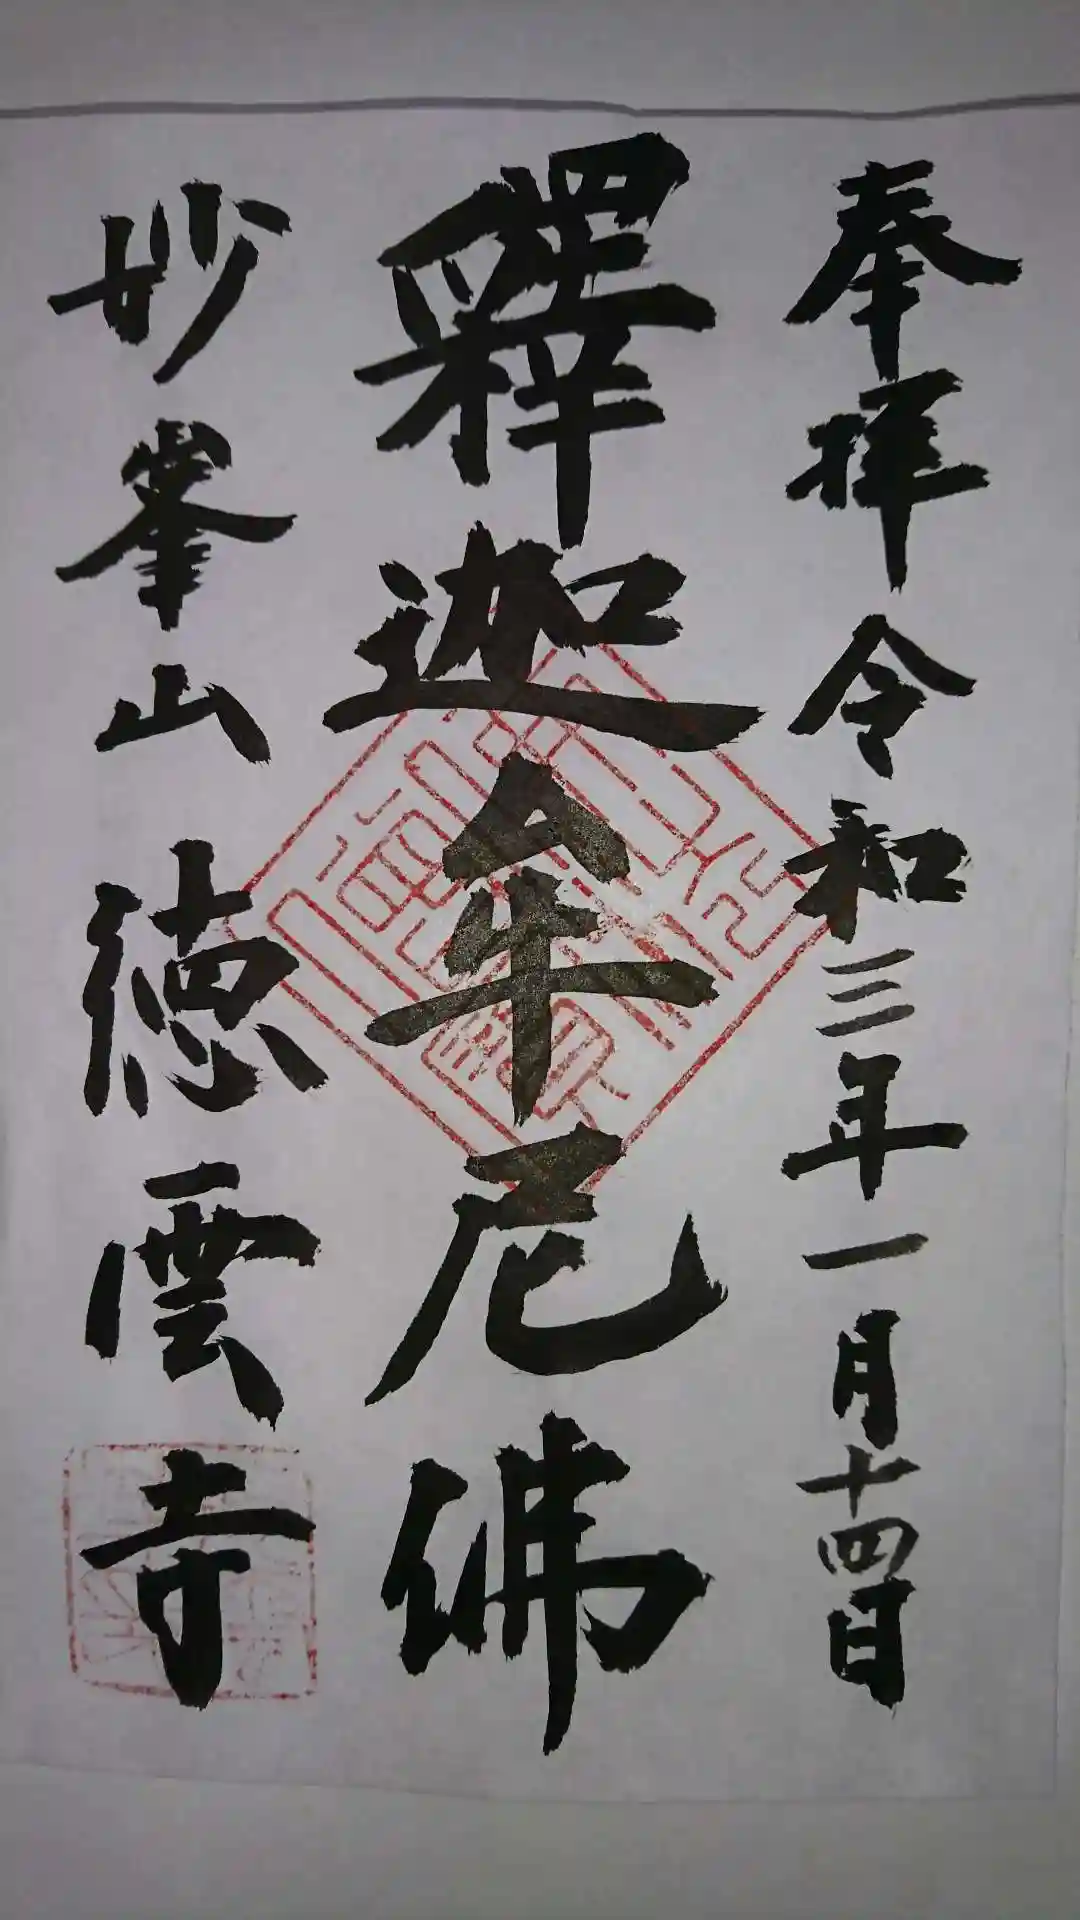 奉拝 令和三年一月十四日
釋迦牟尼佛
妙峯山 徳雲寺